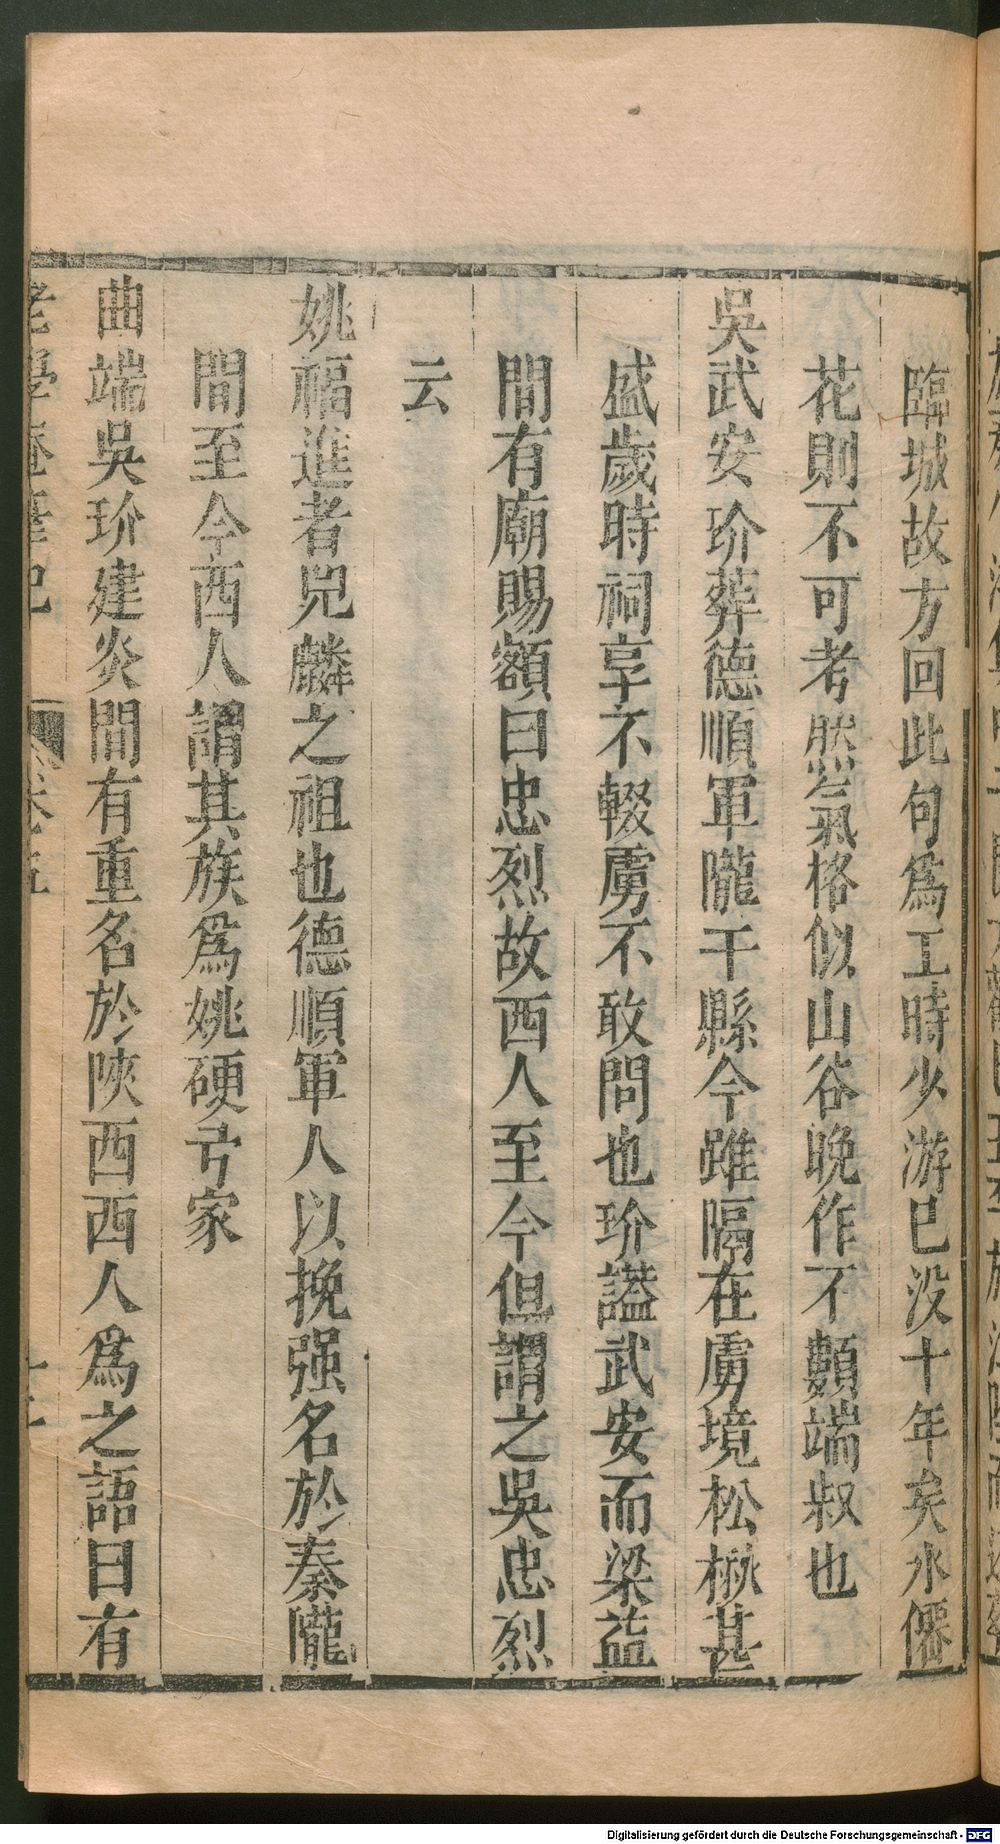 臨城故方回此句爲工時少游已没十年矣水僊
花則不可考然氣格似山谷晚作不類端叔也
吳武安玠葬德順軍隴干縣今雖隔在虜境松楸甚
盛歲時祠享不輟虜不敢問也玠謚武安而梁益
間有廟賜額曰忠烈故西人至今但謂之吳忠烈
云
姚福進者兕麟之祖也德順軍人以挽强名於秦隴
間至今西人謂其族爲姚硬弓家
曲端吳玠建炎間有重名於陝西西人爲之語曰有
老學庵筆記
卷五
十五
Digitalisierung gefördert durch die Deutsche Forschungsgemeinschaft - DFG